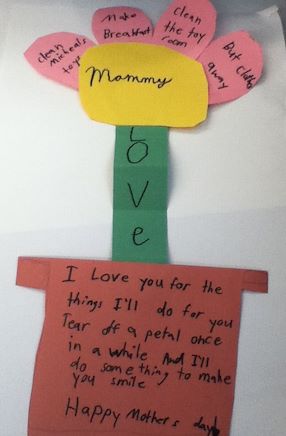 clean
micheals
toys
Make
Breakfast
clean
the toy
room
But clothes
away
Mommy
LOVe
I Love you for the
things I'll do for you
Tear off a petal once
in a while And I'll
do something to make
you smile
Happy Mothers day